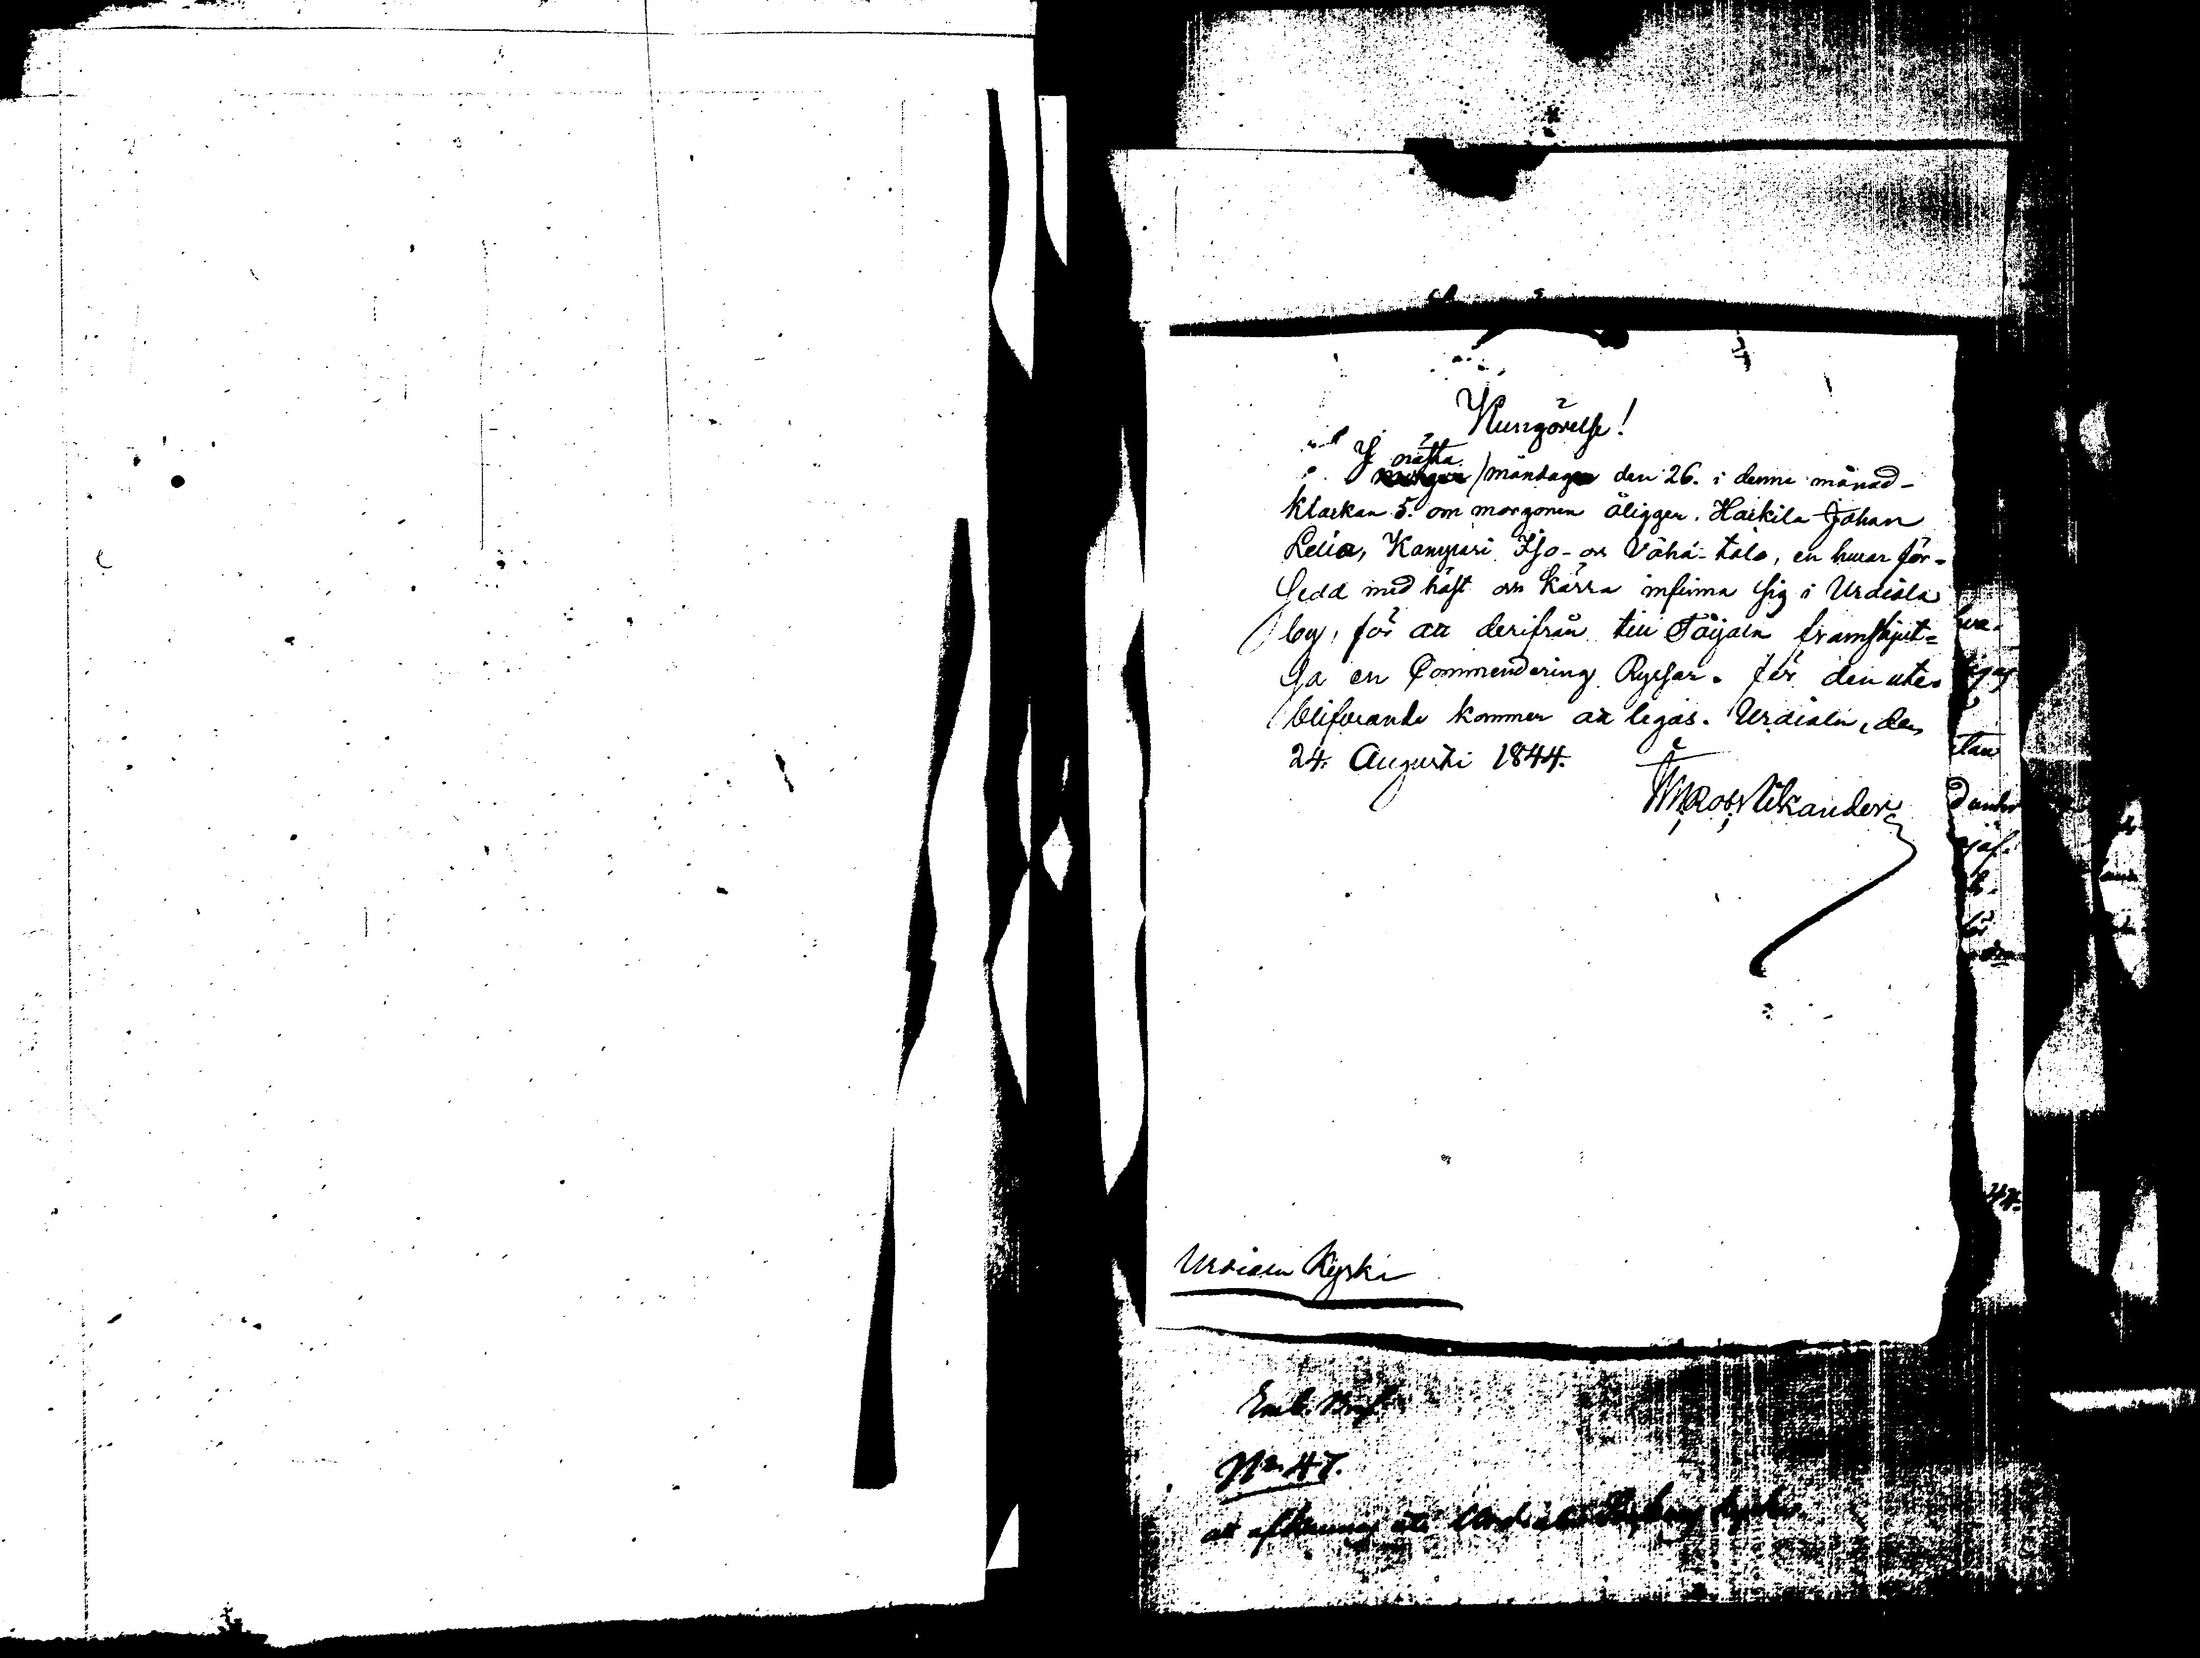 Kungörelse!
I nästa måndag den 26. i denne månad
klockan 5. om morgonen åligger. Haikila Johan
Lelia, Kamppari Iso- och Vähä-talo, en hwar för-
sedd med häst och kärra infinna sig i Urdiala
by, för att derifrån till Täijälä framskjut-
sa en Commendering Ryssar. för den ute-
blifvande kommer att legas. Urdiala, den
24. Augusti 1844.
Rob. Nikander
Urdiala Kyrka
No. 47.